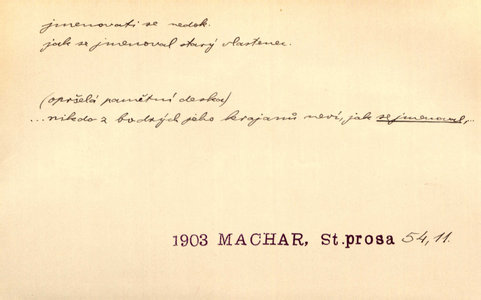 jmenovati se nedok.
jak se jmenoval starý vlastenec.
(opršelá pamětní deska)
...nikdo z bodrých jeho krajanů neví, jak se jmenoval,...
1903 MACHAR, St.prosa 54,11.